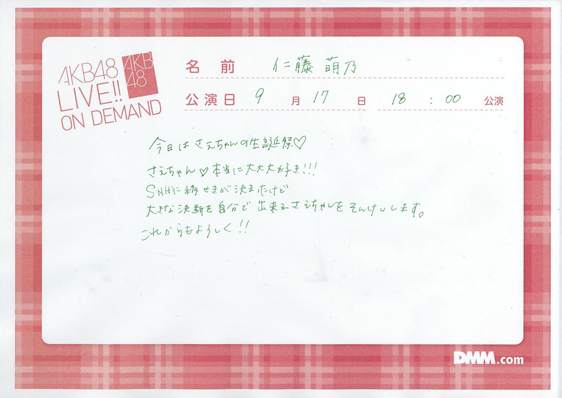 AKB48
LIVE!!
ON DEMAND
AKB
48
名前 仁藤 萌乃
公演日 9月17日 18:00 公演
今日はさえちゃんの生誕祭♡
さえちゃん♡本当に大大大好き!!!
SNHに移せきが決まったけど
大きな決断を自分で出来るさえちゃんをそんけいします。
これからもよろしく!!
DMM.com